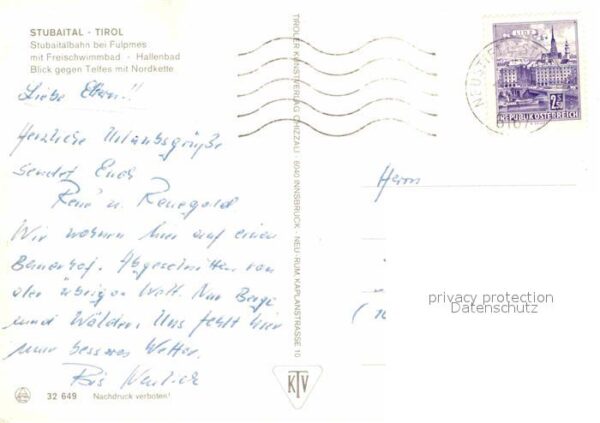 STUBAITAL - TIROL
Stubaitalbahn bei Fulpmes
mit Freischwimmbad - Hallenbad
Blick gegen Telfes mit Nordkette
Liebe Eltern!!
Herzliche Urlaubsgrüße
sendet Euch
René u. Renegold
Wir wohnen hier auf einem
Bauernhof. Abgeschnitten von
der übrigen Welt. Nur Berge
und Wälder. Uns fehlt hier
nur besseres Wetter.
Bis
32 649 Nachdruck verboten!
TIROLER KUNSTVERLAG CHIZZALI · 6040 INNSBRUCK - NEU-RUM KAPLANSTRASSE 10
KTV
LINZ
2.50
REPUBLIK ÖSTERREICH
NEUST
Herrn
privacy protection
Datenschutz